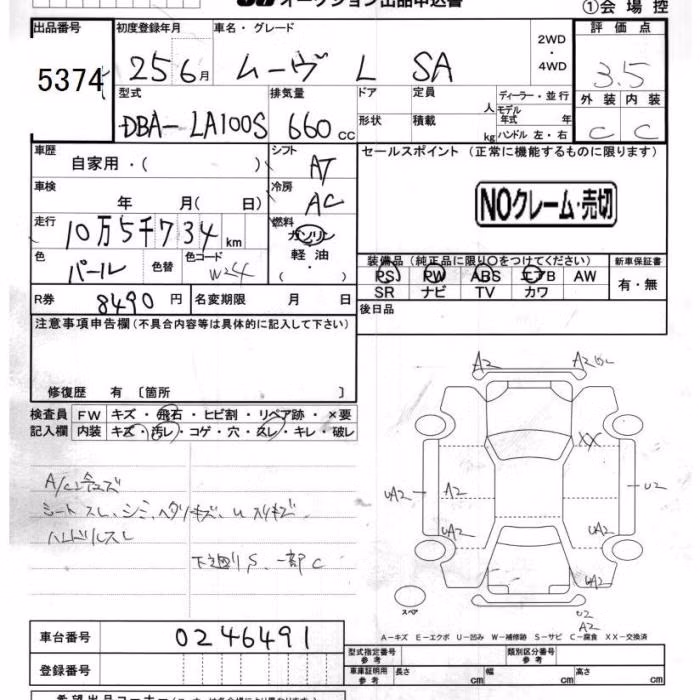 オークション出品申込書
①会場控
出品番号 初度登録年月 車名・グレード 2WD・4WD 評価点
5374 25 6月 ムーヴ L SA 3.5
型式 排気量 ドア 定員 人 ディーラー・並行 外装 内装
DBA-LA100S 660cc 形状 積載 kg モデル年式 年 ハンドル 左・右 C C
車歴 自家用・( ) シフト AT セールスポイント (正常に機能するものに限ります)
車検 年 月( 日) 冷房 AC NOクレーム・売切
走行 10万5千734km 燃料 ガソリン 軽油・( )
色 パール 色替 色コード W24
装備品 (純正品に限り○をつけてください) 新車保証書
PS PW ABS エアB AW 有・無
SR ナビ TV カワ
R券 8490円 名変期限 月 日 後日品
注意事項申告欄 (不具合内容等は具体的に記入して下さい)
修復歴 有 〔箇所 〕
検査員 FW キズ・飛石・ヒビ割・リペア跡・×要
記入欄 内装 キズ・汚レ・コゲ・穴・スレ・キレ・破レ
シート スレ、シミ、ヘタリ キズ、
ハンドルスレ
下廻り S、一部C
A2 A2
XX
UA2 A2 U2
UA2 UA2
UA2
スペア
U2
A2
A−キズ E−エクボ U−凹み W−補修跡 S−サビ C−腐食 XX−交換済
車台番号 0246491
型式指定番号 参考 類別区分番号 参考
登録番号 車庫証明用 参考 長さ cm 幅 cm 高さ cm
希望出品コーナー